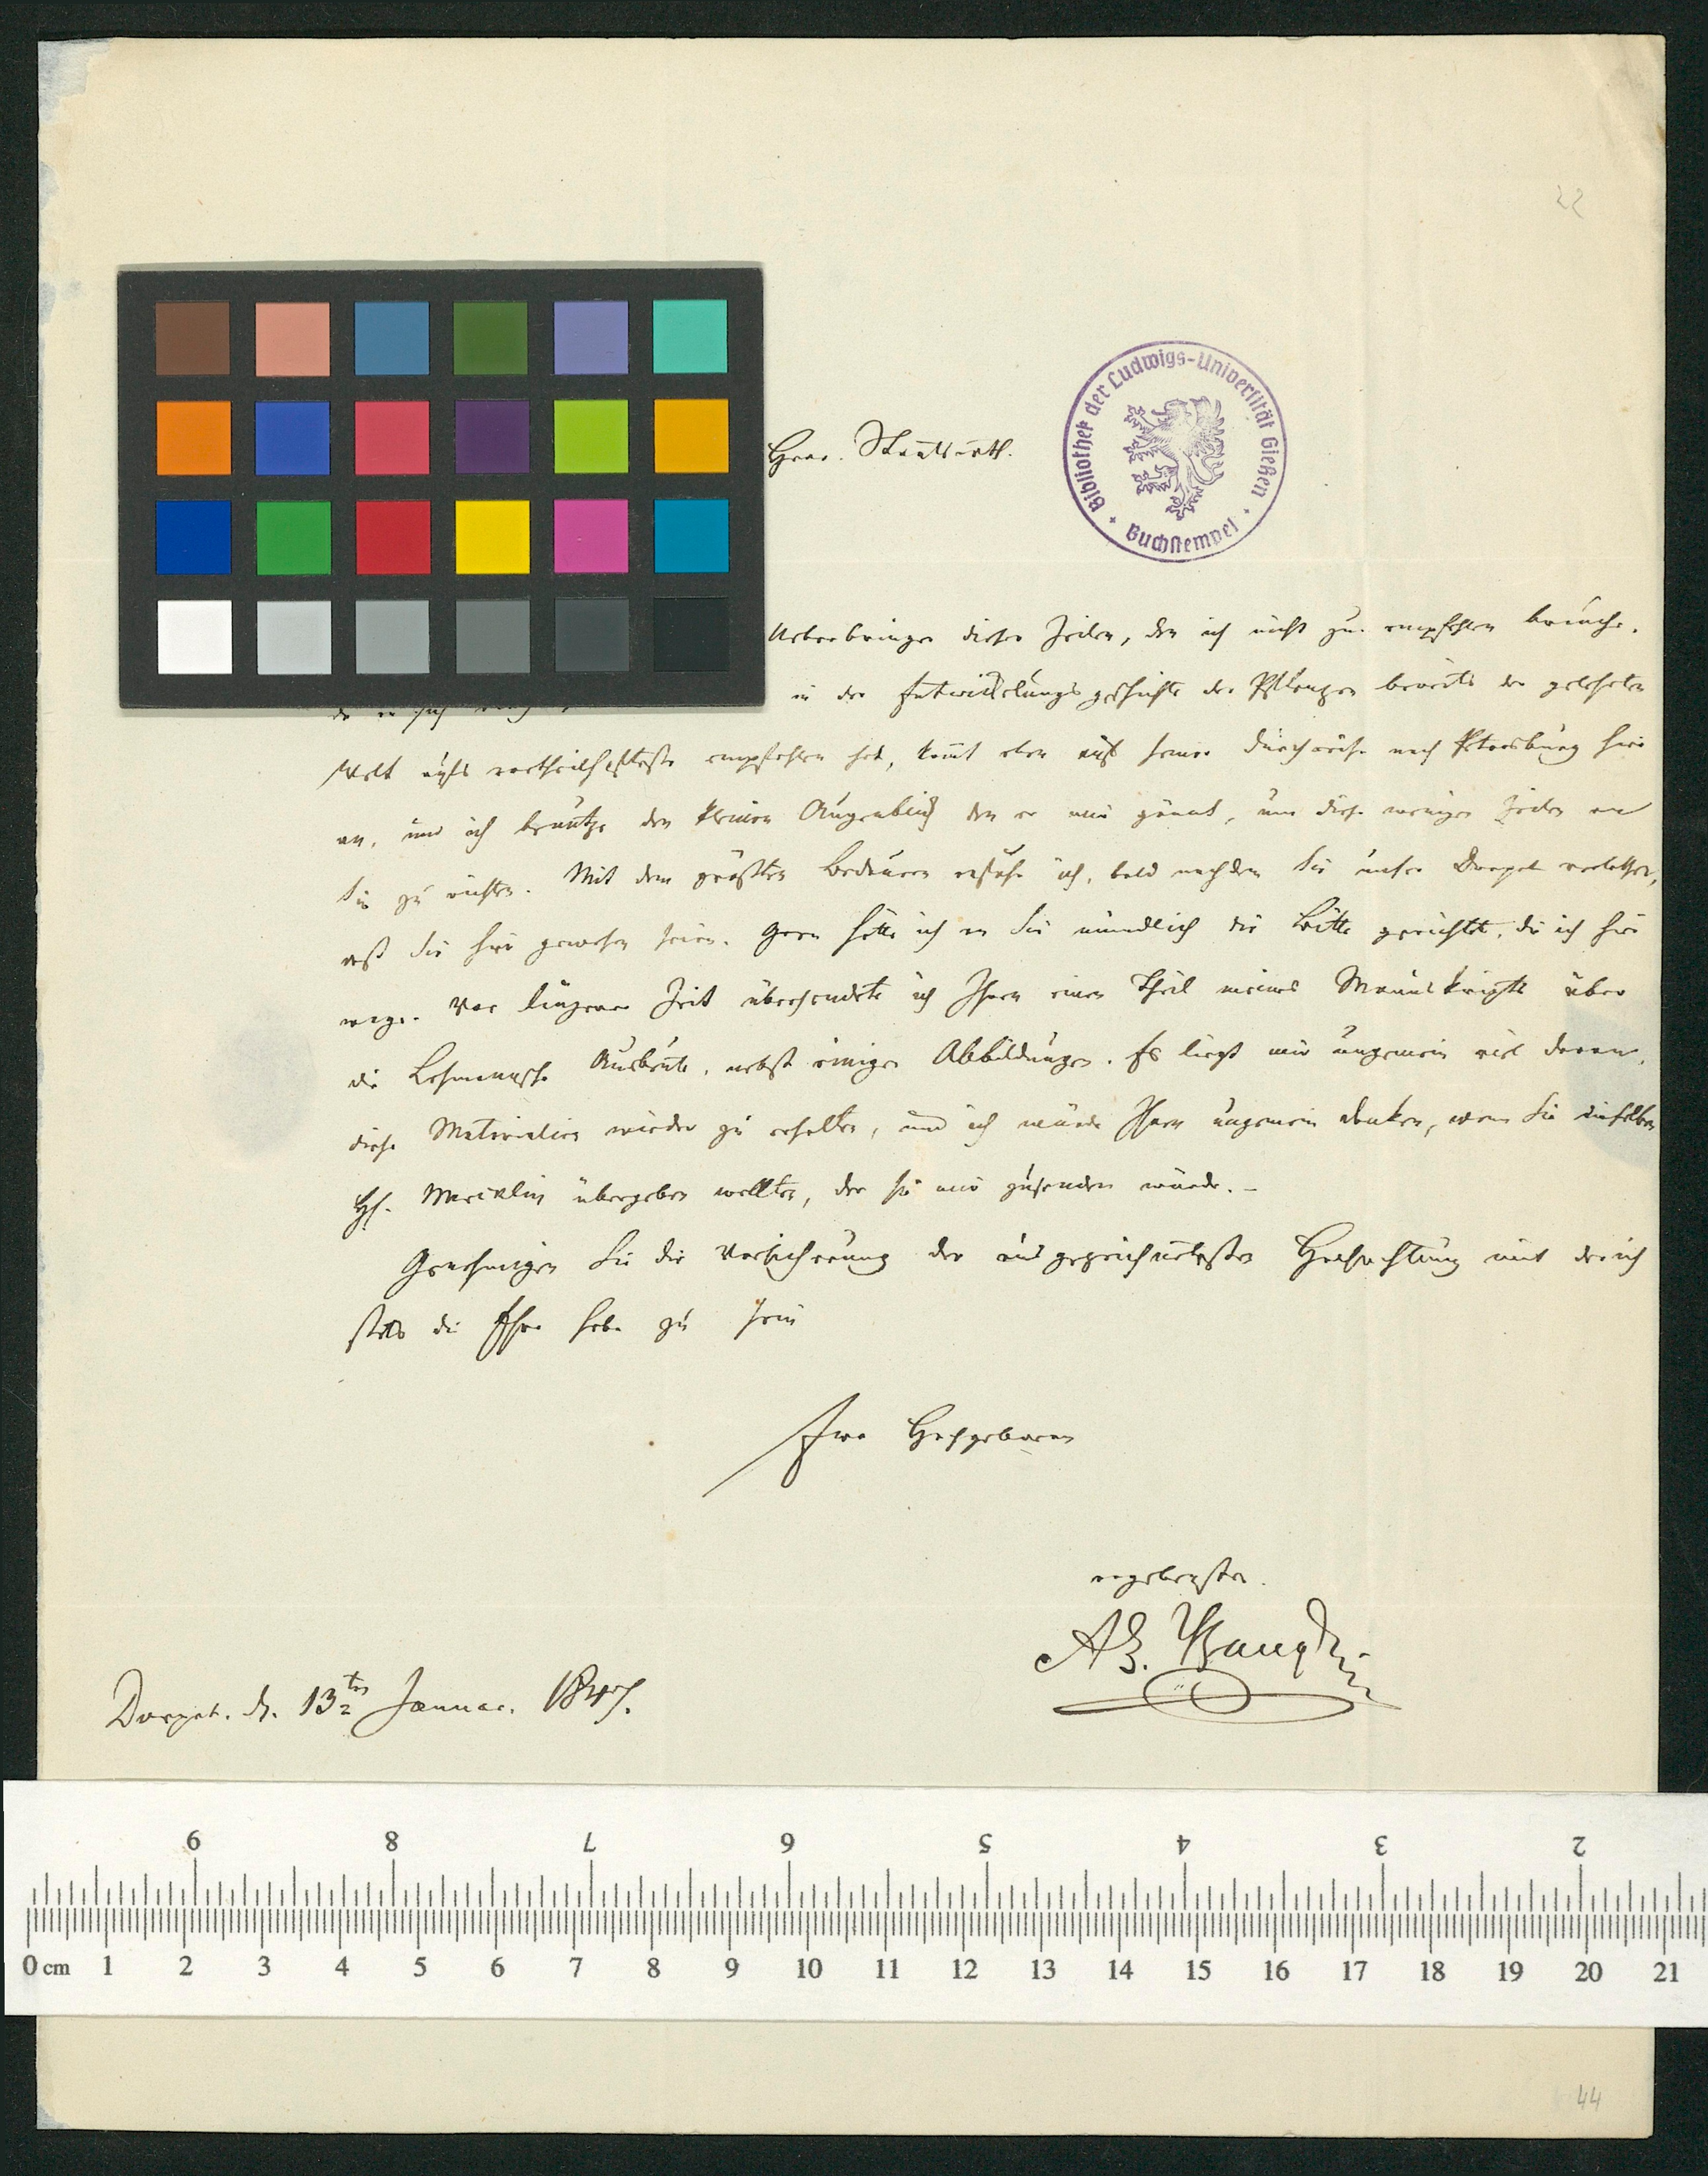 22
Herr Staatsrath.
Bibliothek der Ludwigs-Universität Gießen
Buchstempel
Ueberbringer dieser Zeilen, den ich nicht zu empfehlen brauche,
da er sich in der Entwickelungsgeschichte der Pflanzen bereits der gelehrten
Welt aufs vortheilhafteste empfohlen hat, kömt eben auf seiner Durchreise nach Petersburg hier
an, und ich benutze den kleinen Augenblick den er mir gönnt, um diese wenigen Zeilen an
Sie zu richten. Mit dem größten Bedauern erfuhr ich, bald nachdem Sie unser Dorpat verlassen,
daß Sie hier gewesen seien. Gern hätte ich an Sie mündlich die Bitte gerichtet, die ich hier
wage. Vor längerer Zeit übersendete ich Ihnen einen Theil meines Manuskripts über
die Lehmannsche Ausbeute, nebst einigen Abbildungen. Es liegt mir ungemein viel daran,
diese Materialien wieder zu erhalten, und ich würde Ihnen ungemein danken, wenn Sie dieselben
H. Mercklin übergeben wollten, der sie mir zusenden würde. –
Genehmigen Sie die Versicherung der ausgezeichnetesten Hochachtung mit der ich
stets die Ehre habe zu sein
Ewr Hochgeboren
ergebenster
Al. Bunge
Dorpat. d. 13ten Januar. 1847.
9 8 7 6 5 4 3 2
0 cm 1 2 3 4 5 6 7 8 9 10 11 12 13 14 15 16 17 18 19 20 21
44